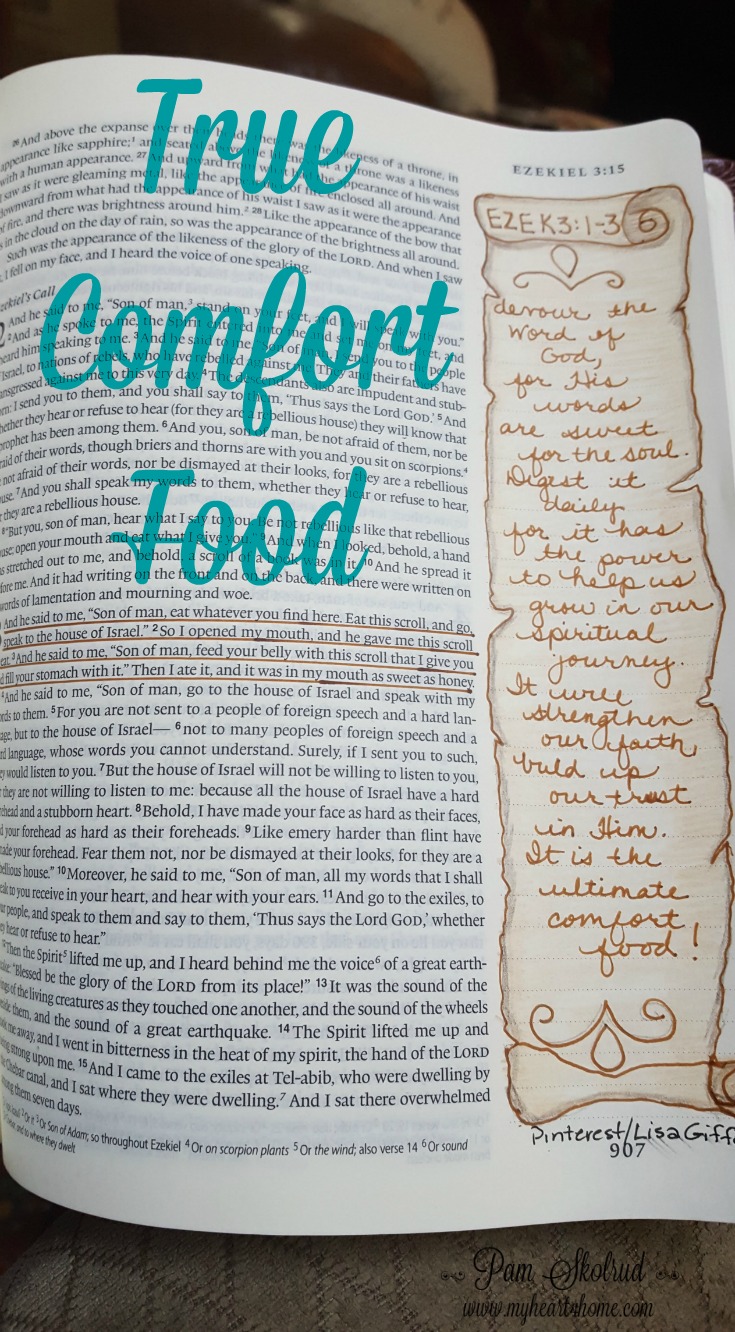 True
Comfort
Food
26And above the expanse over their heads there was the likeness of a throne, in
appearance like sapphire;1 and seated above the likeness of a throne was a likeness
with a human appearance. 27 And upward from what had the appearance of his waist
I saw as it were gleaming metal, like the appearance of fire enclosed all around. And
downward from what had the appearance of his waist I saw as it were the appearance
of fire, and there was brightness around him.2 28 Like the appearance of the bow that
is in the cloud on the day of rain, so was the appearance of the brightness all around.
Such was the appearance of the likeness of the glory of the LORD. And when I saw
I fell on my face, and I heard the voice of one speaking.
Ezekiel's Call
2 And he said to me, "Son of man,3 stand on your feet, and I will speak with you."
2And as he spoke to me, the Spirit entered into me and set me on my feet, and
heard him speaking to me. 3And he said to me, "Son of man, I send you to the people
Israel, to nations of rebels, who have rebelled against me. They and their fathers have
transgressed against me to this very day. 4The descendants also are impudent and stub-
born: I send you to them, and you shall say to them, 'Thus says the Lord GOD.' 5And
whether they hear or refuse to hear (for they are a rebellious house) they will know that
prophet has been among them. 6And you, son of man, be not afraid of them, nor be
afraid of their words, though briers and thorns are with you and you sit on scorpions.4
not afraid of their words, nor be dismayed at their looks, for they are a rebellious
house. 7And you shall speak my words to them, whether they hear or refuse to hear,
they are a rebellious house.
8"But you, son of man, hear what I say to you. Be not rebellious like that rebellious
house; open your mouth and eat what I give you." 9And when I looked, behold, a hand
was stretched out to me, and behold, a scroll of a book was in it. 10And he spread it
before me. And it had writing on the front and on the back, and there were written on
words of lamentation and mourning and woe.
And he said to me, "Son of man, eat whatever you find here. Eat this scroll, and go,
speak to the house of Israel." 2So I opened my mouth, and he gave me this scroll
eat. 3And he said to me, "Son of man, feed your belly with this scroll that I give you
d fill your stomach with it." Then I ate it, and it was in my mouth as sweet as honey.
4And he said to me, "Son of man, go to the house of Israel and speak with my
words to them. 5For you are not sent to a people of foreign speech and a hard lan-
guage, but to the house of Israel— 6not to many peoples of foreign speech and a
hard language, whose words you cannot understand. Surely, if I sent you to such,
they would listen to you. 7But the house of Israel will not be willing to listen to you,
they are not willing to listen to me: because all the house of Israel have a hard
forehead and a stubborn heart. 8Behold, I have made your face as hard as their faces,
d your forehead as hard as their foreheads. 9Like emery harder than flint have
made your forehead. Fear them not, nor be dismayed at their looks, for they are a
rebellious house." 10Moreover, he said to me, "Son of man, all my words that I shall
speak to you receive in your heart, and hear with your ears. 11And go to the exiles, to
your people, and speak to them and say to them, 'Thus says the Lord GOD,' whether
they hear or refuse to hear."
12Then the Spirit5 lifted me up, and I heard behind me the voice6 of a great earth-
quake: "Blessed be the glory of the LORD from its place!" 13It was the sound of the
wings of the living creatures as they touched one another, and the sound of the wheels
beside them, and the sound of a great earthquake. 14The Spirit lifted me up and
took me away, and I went in bitterness in the heat of my spirit, the hand of the LORD
being strong upon me. 15And I came to the exiles at Tel-abib, who were dwelling by
the Chebar canal, and I sat where they were dwelling.7 And I sat there overwhelmed
among them seven days.
2 Or it 3 Or Son of Adam; so throughout Ezekiel 4 Or on scorpion plants 5 Or the wind; also verse 14 6 Or sound
and to where they dwelt
EZEKIEL 3:15
EZEK3:1-3 6
devour the
Word of
God,
for His
words
are sweet
for the soul.
Digest it
daily
for it has
the power
to help us
grow in our
spiritual
journey.
It will
strengthen
our faith,
build up
our trust
in Him.
It is the
ultimate
comfort
food!
Pinterest/Lisa Giff
907
Pam Skolrud
www.myheart4home.com